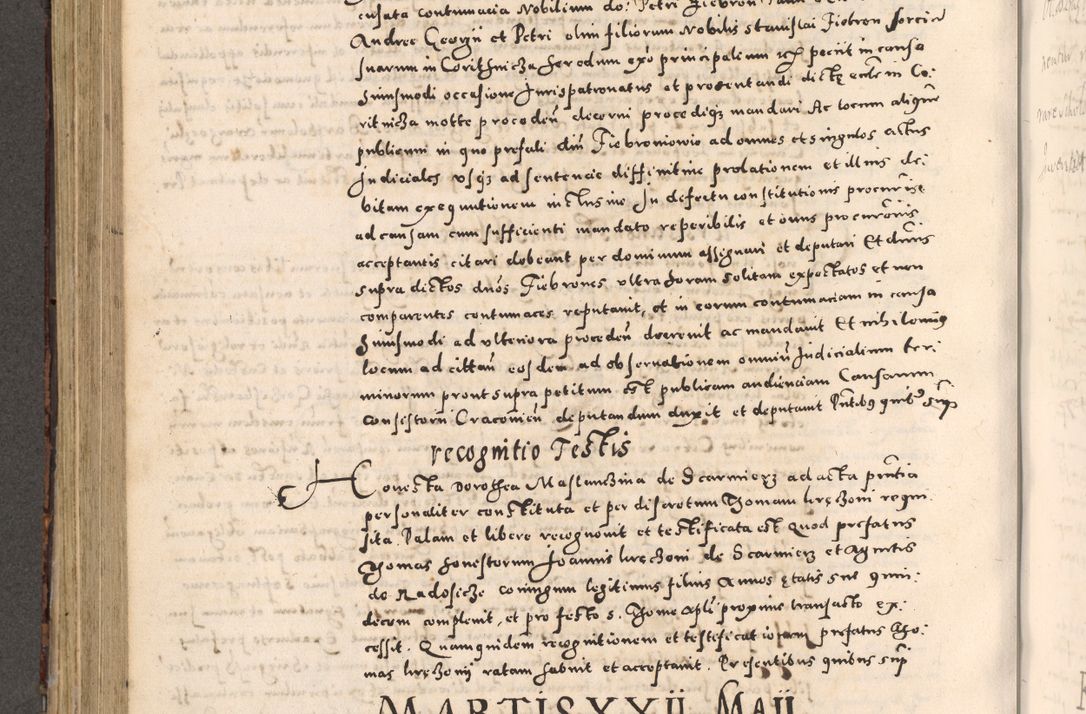 cusata contumacia Nobilium do: Petri
Andree Georgii et Petri olim filiorum Nobilis Stanislai Fiebron
suarum in Corithnicza heredum exo principalium petiit in causa
huiusmodi occasione Jurispatronatus et presentandi dicte eccle in Co:
ritnicza motte proceden decerni procedique mandari Ac locum aliquem
publicum in quo prefati dni Fiebroniowie ad omnes et singulos actus
Judiciales usque ad sentencie diffinitive prolationem et illius de:
bitam exequutionem inclusive In defectu constitutionis procuris
ad causam cum sufficienti mandato reperibilis et onus procuroris
acceptantis citari debeant per dominum assignari et deputari Et dnus
supra dictos dnos Fiebrones ultra horam solitam expectatos et non
comparentes contumaces reputavit, et in eorum contumaciam in causa
huiusmodi ad ulteriora proceden decrevit ac mandavit Et nihilominus
locum ad cittan eosdem ad observationem omniu Judicialium ter:
minorum prout supra petitum est publicam audienciam Causarum
Consistorii Cracovien deputandum duxit et deputavit Pntibus quibus supra
recognitio Testis
Honesta Dorothea Maslanczina de Scarmierz ad acta pntia
personaliter constituta et per discretum Thomam requi:
sita. Palam et libere recognovit et testificata est Quod prefatus
Thomas honestorum Joannis de Scarmierz et Agnetis
de Radosicze coniugum legitimus filius Annos etatis sue quin:
decem complevit, et pro festo s. Thome apli proxime transacto ex:
cessit. Quamquidem recognitionem et testificationem prefatus Tho:
mas ratam habuit et acceptavit. Presentibus quibus supra
MARTIS XXII MAII